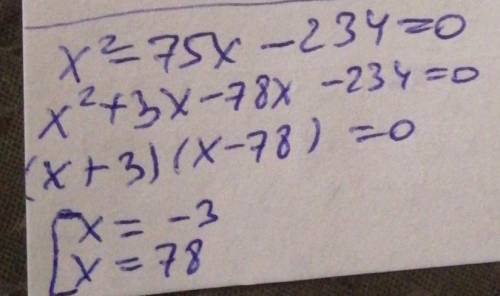 x²=75x-234=0
x²+3x-78x -234=0
(x+3)(x-78) =0
[x = -3
x = 78